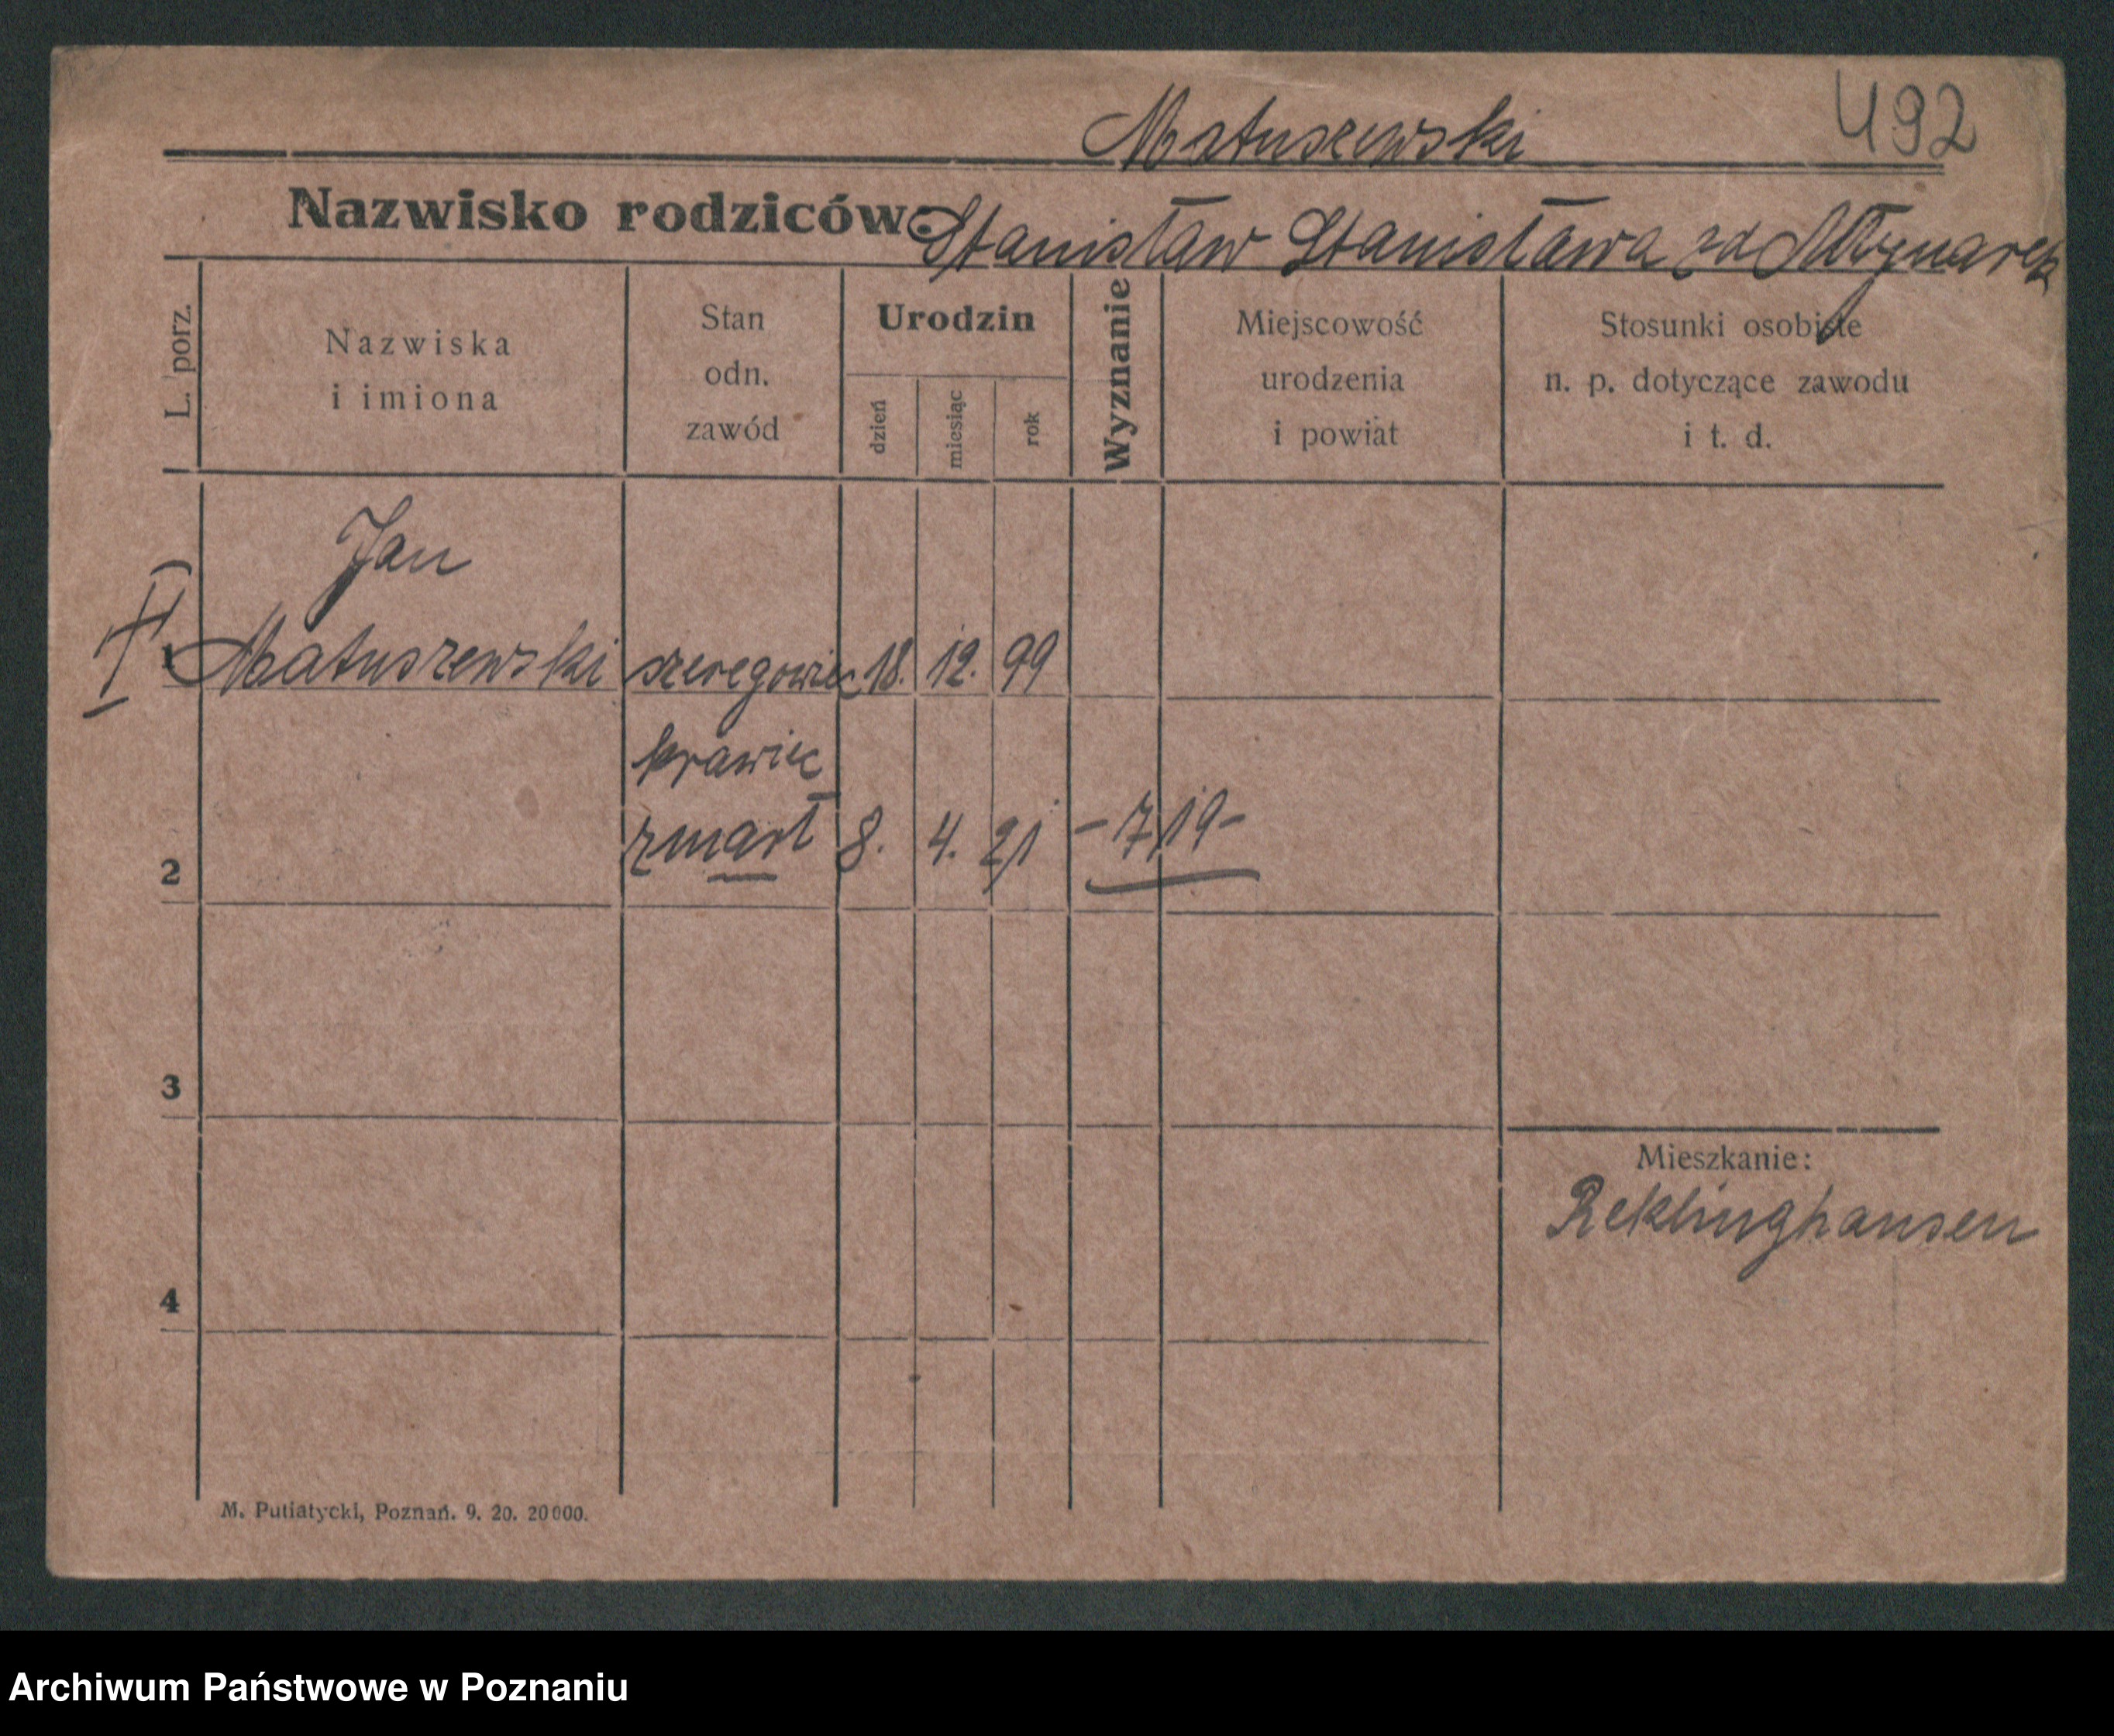 492
Matuszewski
Nazwisko rodziców: Stanisław Stanisława zd Młynarek
L. porz.
Nazwiska
i imiona
Stan
odn.
zawód
Urodzin
dzień
miesiąc
rok
Wyznanie
Miejscowość
urodzenia
i powiat
Stosunki osobiste
n. p. dotyczące zawodu
i t. d.
Jan
1 Matuszewski szeregowiec 18. 12. 99
krawiec
2 zmarł 8. 4. 21 - 719 -
3
Mieszkanie:
Reklinghausen
4
M. Putiatycki, Poznań. 9. 20. 20000.
Archiwum Państwowe w Poznaniu